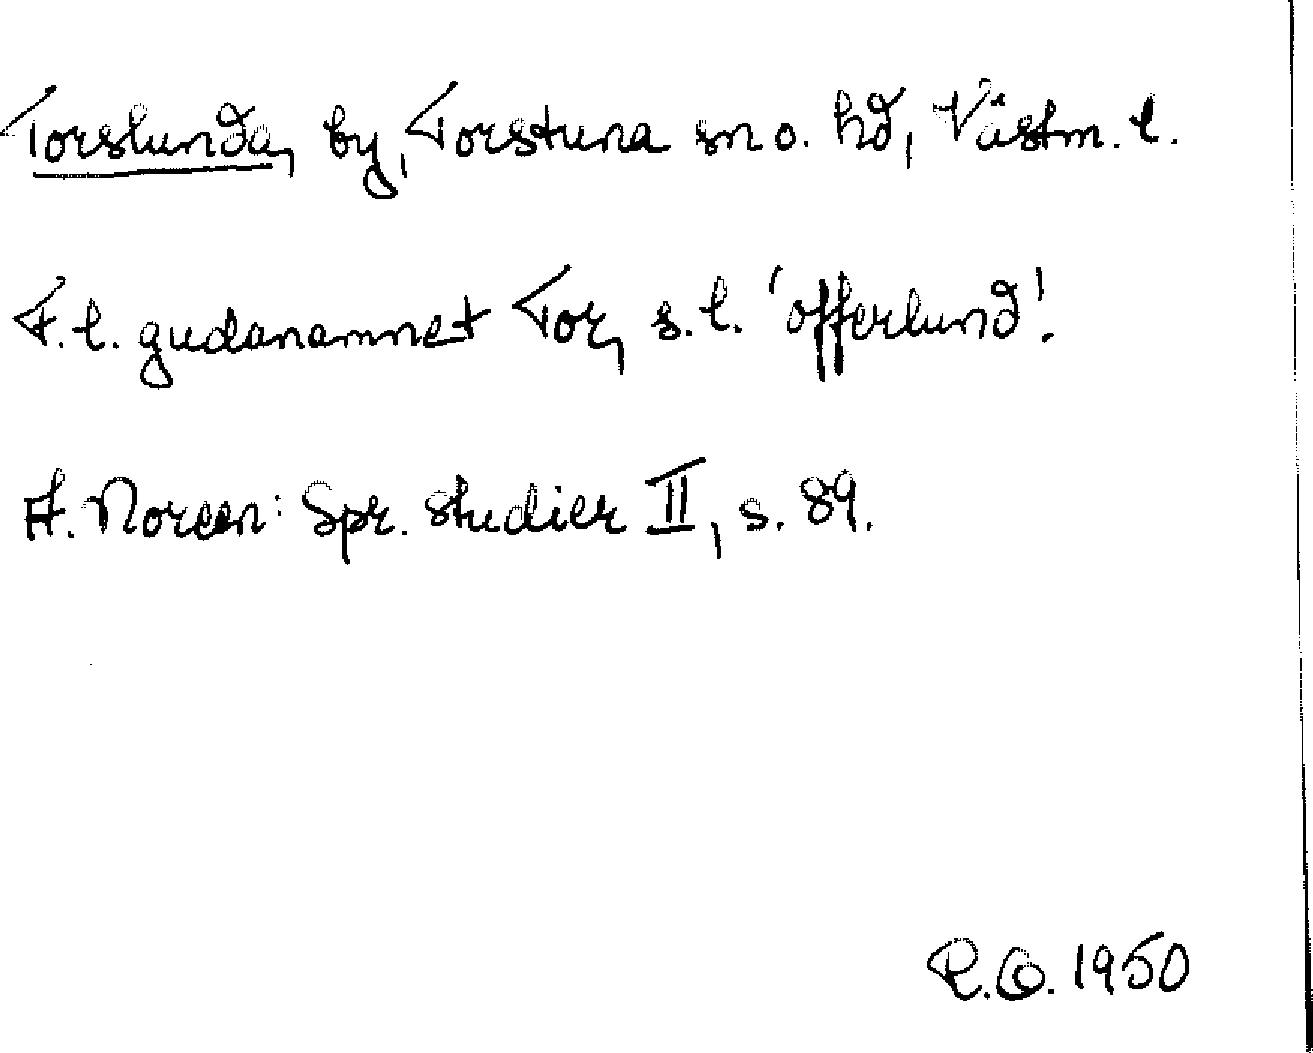 Torslunda, by, Torstuna sn o. hd, Västm. l.
F.l. gudanamnet Tor, s.l. 'offerlund'.
A. Noreen: Spr. studier II, s. 89.
R.G. 1950